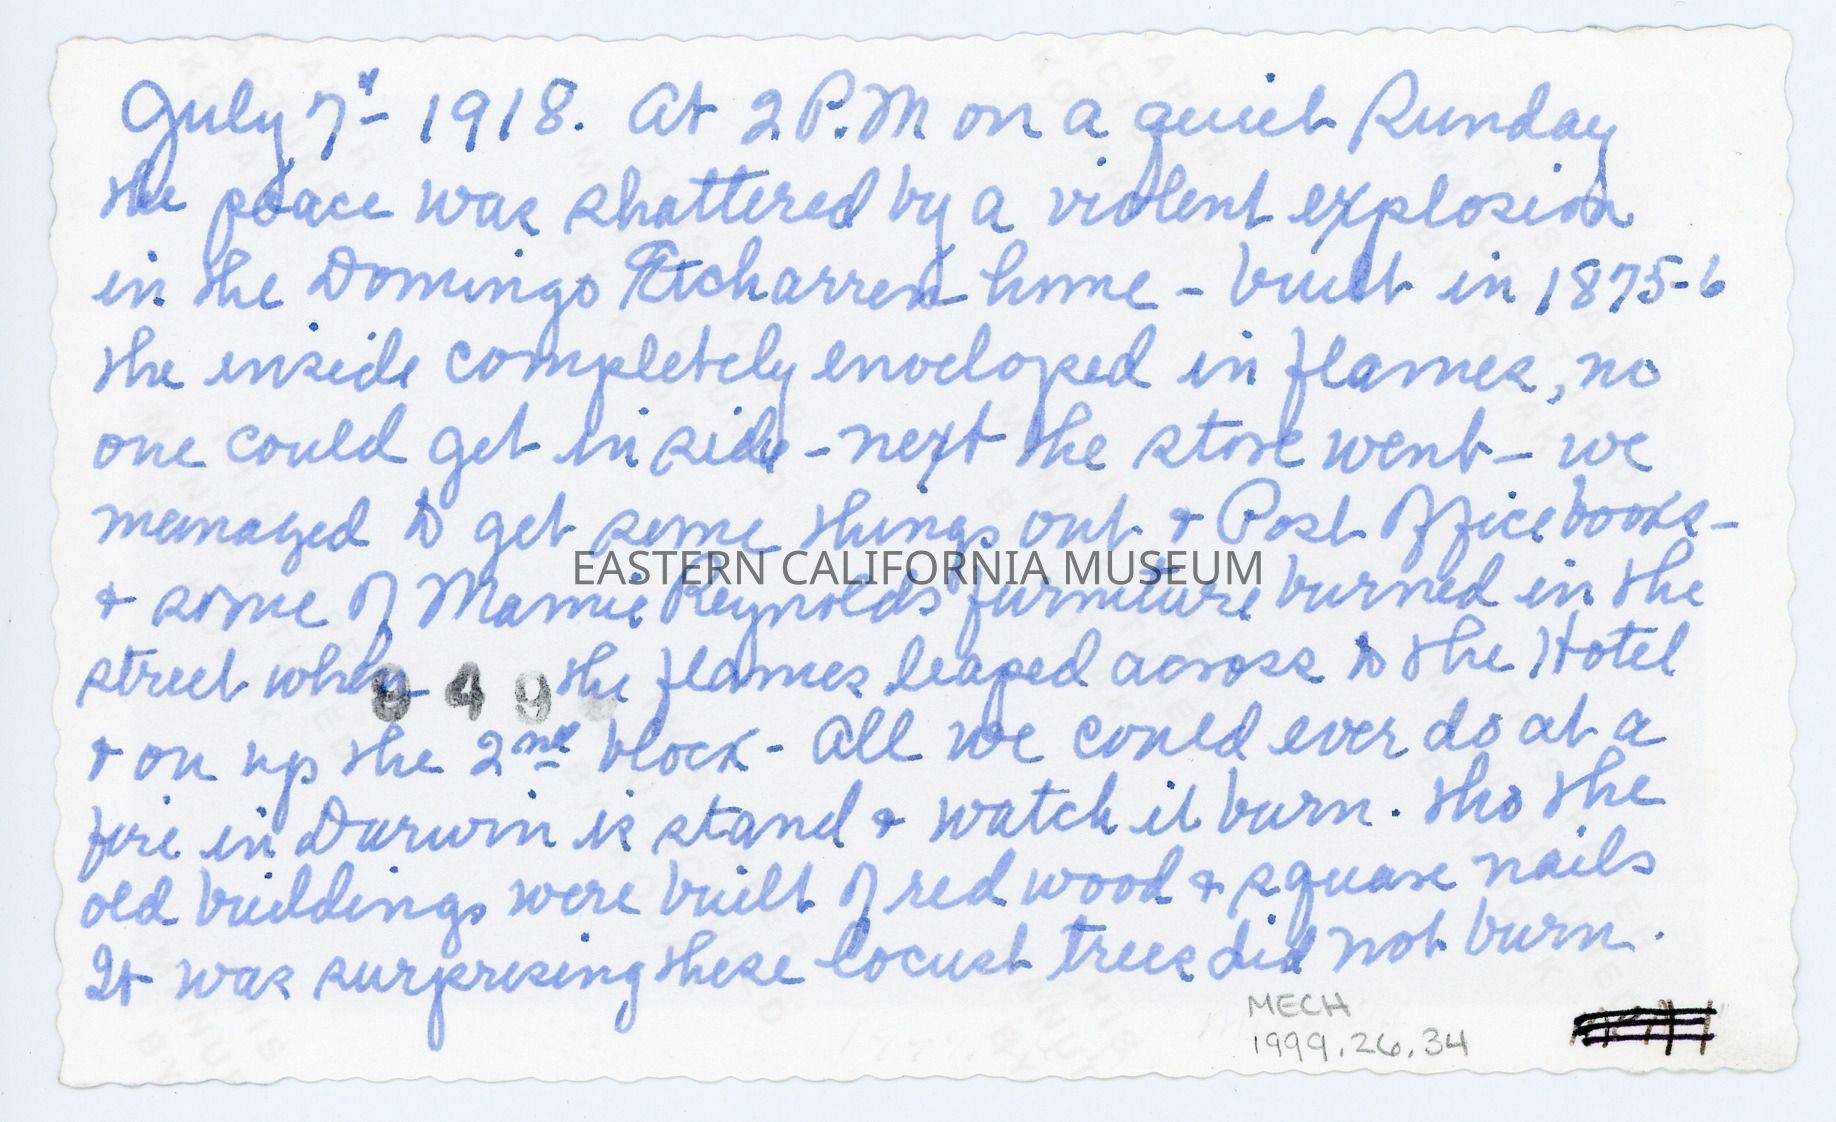 July 7th 1918. At 2 P.M on a quiet Sunday
the peace was shattered by a violent explosion
in the Domingo Etcharren home - built in 1875-6
the inside completely enveloped in flames, no
one could get inside - next the store went - we
managed to get some things out & Post Office books -
EASTERN CALIFORNIA MUSEUM
& some of Mamie Reynolds furniture burned in the
street when the flames leaped across to the Hotel
949
& on up the 2nd block - All we could ever do at a
fire in Darwin is stand & watch it burn. tho the
old buildings were built of red wood & square nails
It was surprising these locust trees did not burn.
MECH
1999.26.34